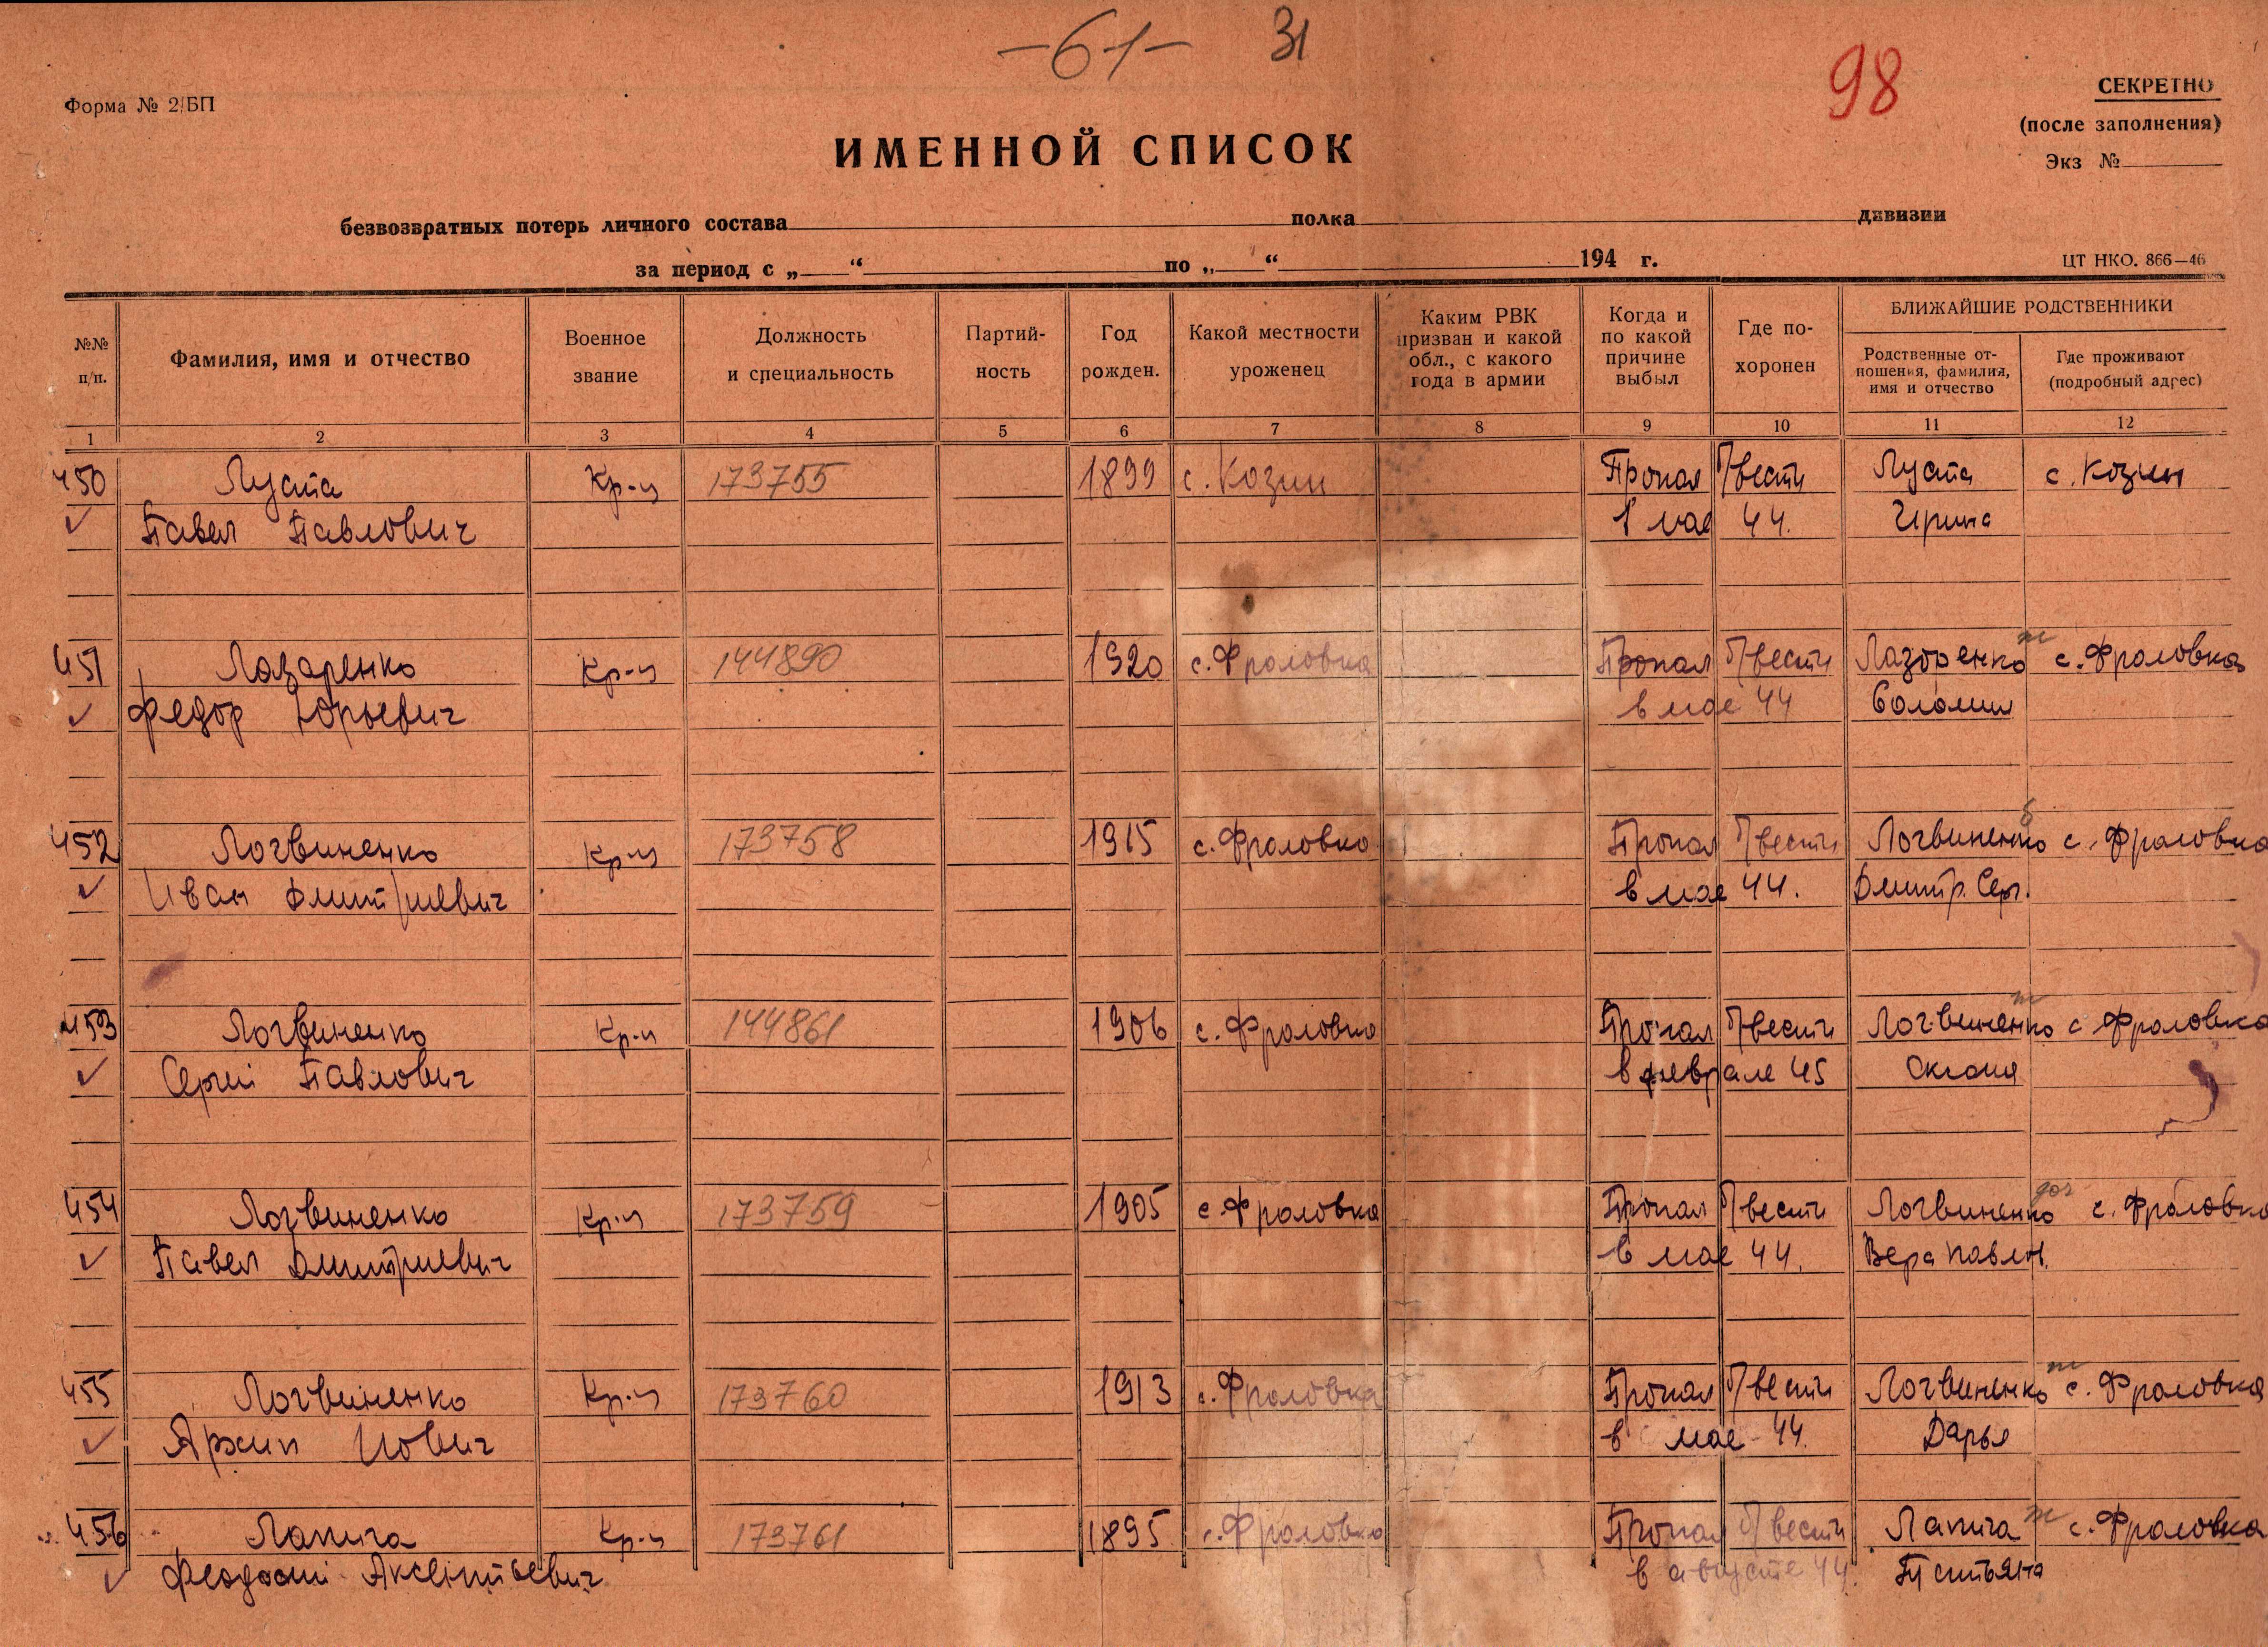 -61- 31
98
Форма № 2/БП
СЕКРЕТНО
(после заполнения)
Экз №
ИМЕННОЙ СПИСОК
безвозвратных потерь личного состава полка дивизии
за период с „ “ по „ “ 194 г.
ЦТ НКО. 866—46
№№ п/п.
Фамилия, имя и отчество
Военное звание
Должность и специальность
Партий-ность
Год рожден.
Какой местности уроженец
Каким РВК призван и какой обл., с какого года в армии
Когда и по какой причине выбыл
Где по-хоронен
БЛИЖАЙШИЕ РОДСТВЕННИКИ
Родственные от-ношения, фамилия, имя и отчество
Где проживают (подробный адрес)
1 2 3 4 5 6 7 8 9 10 11 12
450 Лузата Кр-ц 173755 1899 с. Козин Пропал б/вести Лузата с. Козин
Павел Павлович мае 44. Ирина
451 Лазаренко Кр-ц 144890 1920 с. Фроловка Пропал б/вести Лазоренко ж с. Фроловка
Федор Юрьевич в мае 44 Соломия
452 Логвиненко Кр-ц 173758 1915 с. Фроловка Пропал б/вести Логвиненко с. Фроловка
Иван Дмитриевич в мае 44. Дмитр. Сер.
453 Логвиненко Кр-ц 144861 1906 с. Фроловка Пропал б/вести Логвиненко ж с. Фроловка
Сергей Павлович в феврале 45
454 Логвиненко Кр-ц 173759 1905 с. Фроловка Пропал б/вести Логвиненко доч с. Фроловка
Павел Дмитриевич в мае 44. Вера Павлов.
455 Логвиненко Кр-ц 173760 1913 с. Фроловка Пропал б/вести Логвиненко ж с. Фроловка
Архип Иович в мае 44. Дарья
456 Лапига Кр-ц 173761 1895 с. Фроловка Пропал б/вести Лапига ж с. Фроловка
Феодосий Аксентьевич в августе 44.